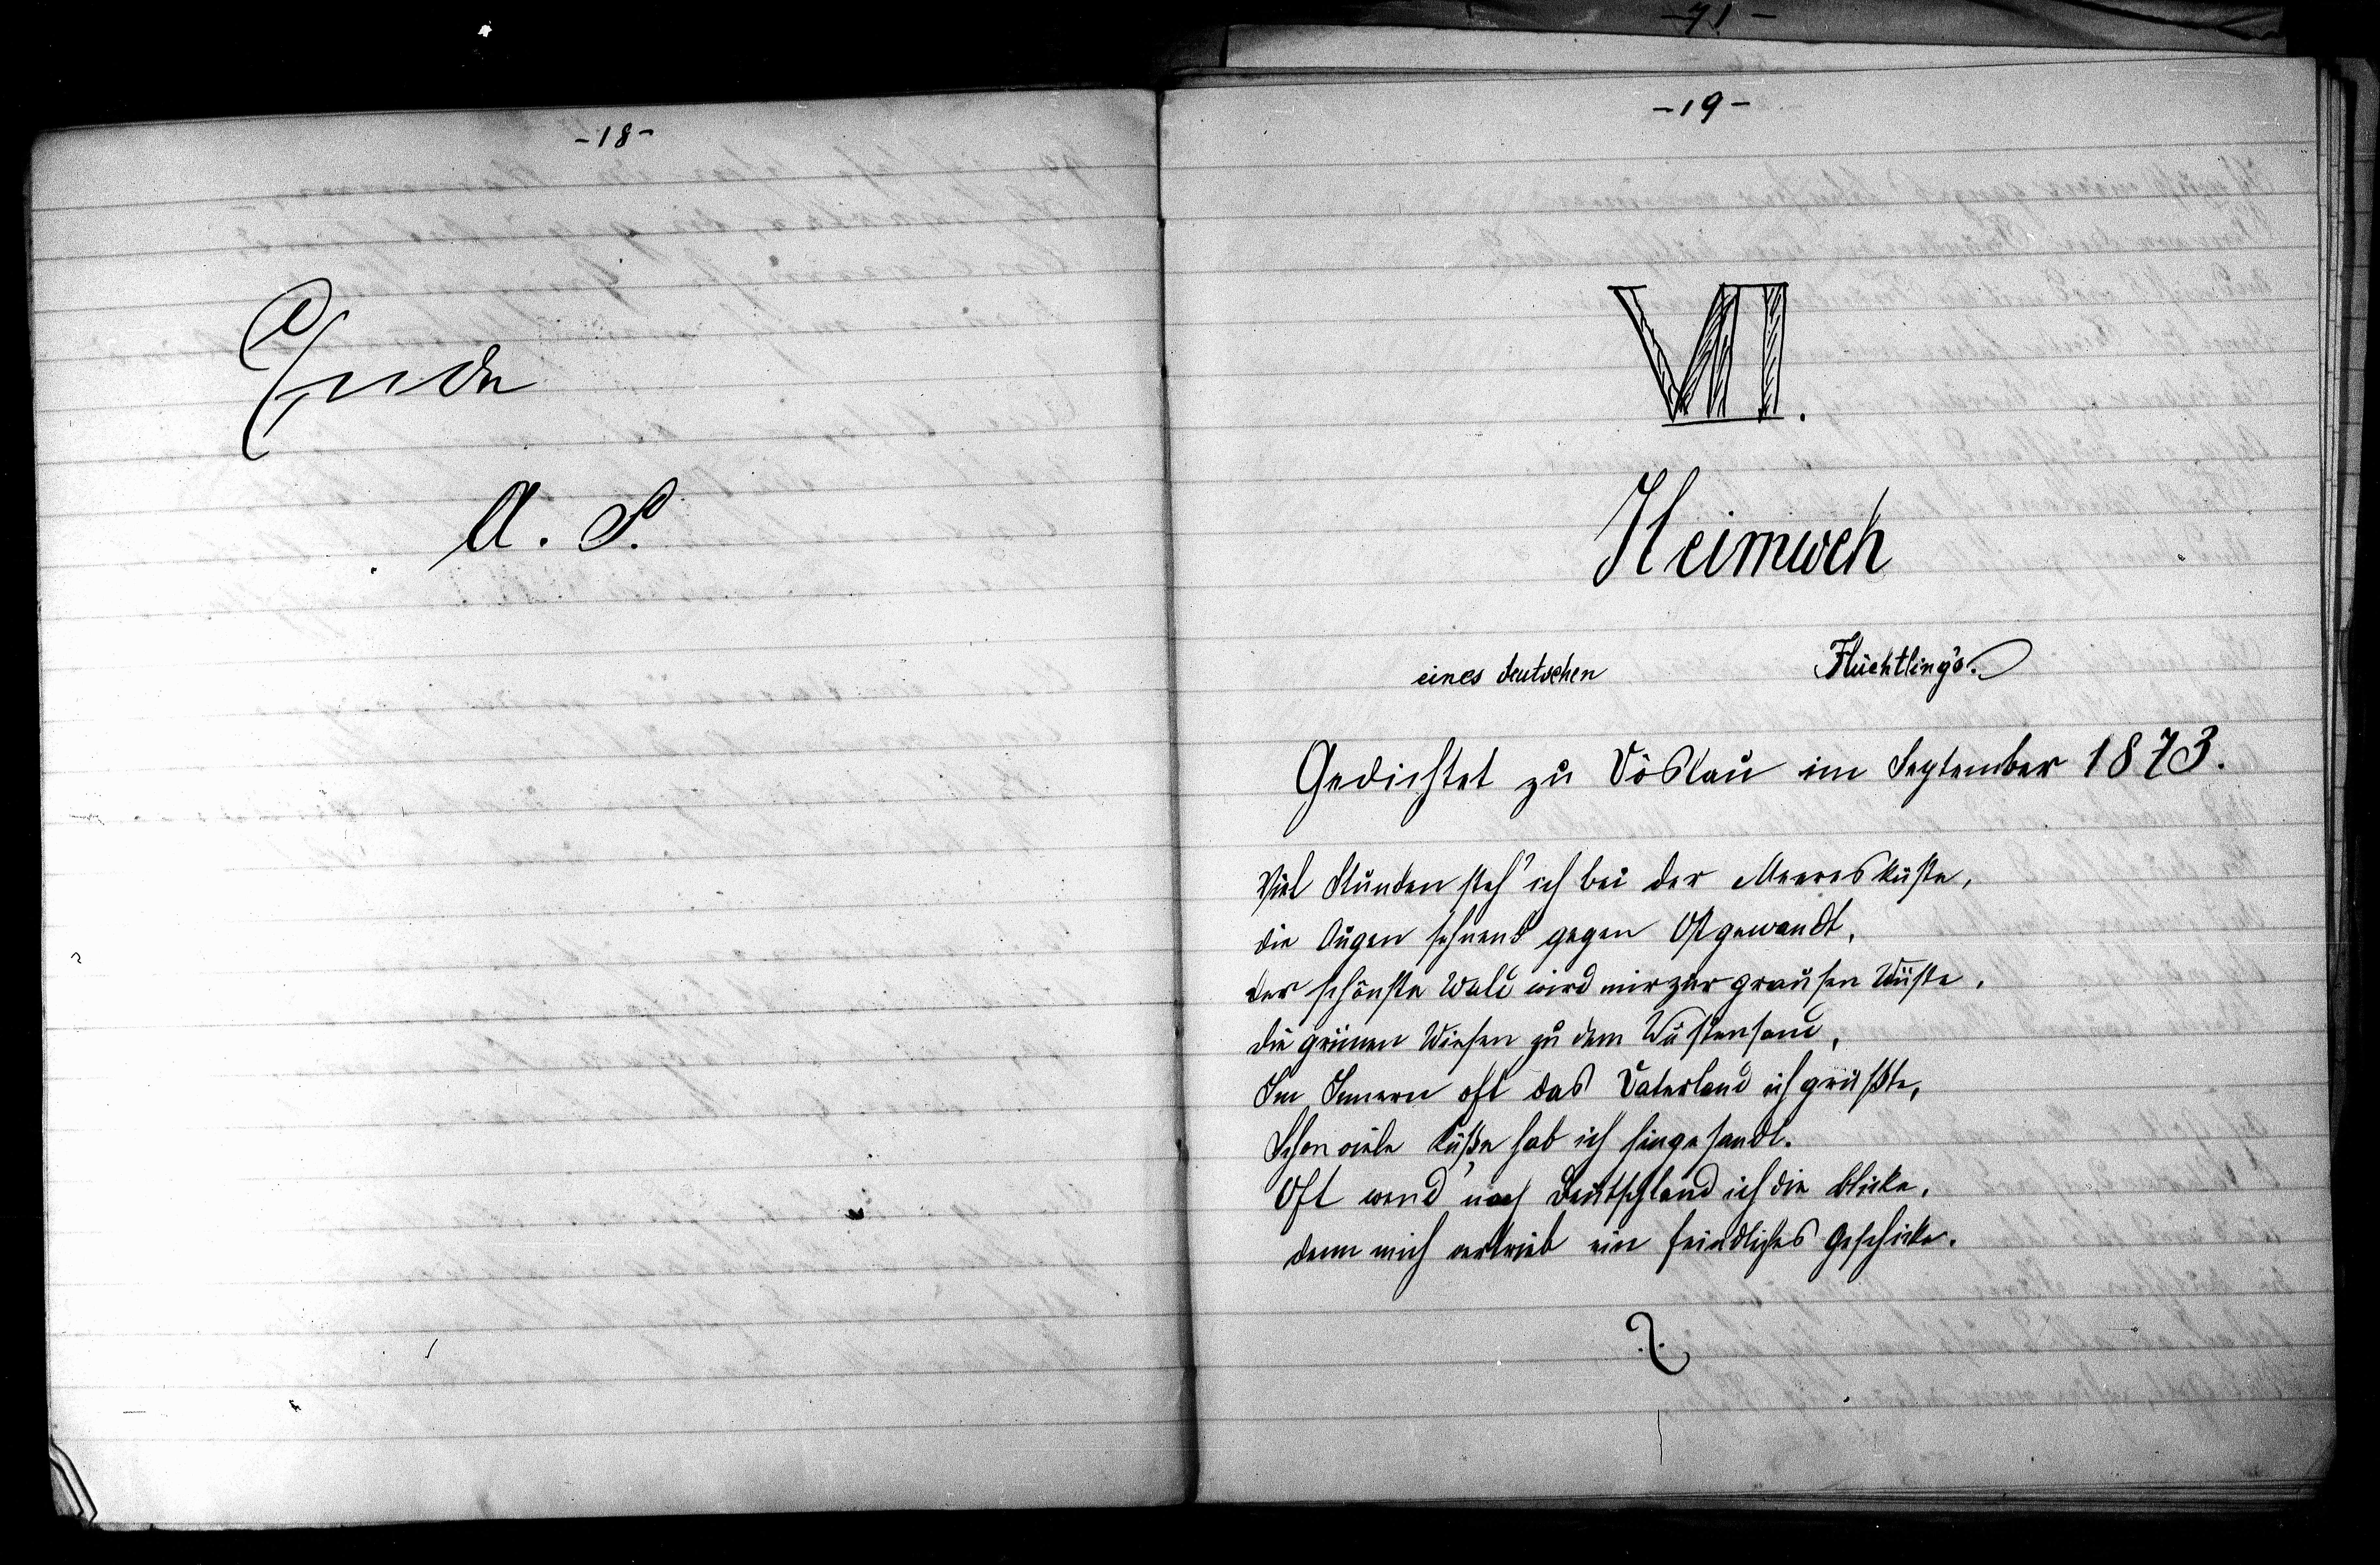 -71-
-18-
Ende
A. S.
-19-
VII.
Heimweh
eines deutschen Flüchtling's.
Gedichtet zu Vöslau im September 1873.
Viel Stunden steh' ich bei der Meeresküste,
die Augen sehnend gegen Ost gewandt,
der schönste Wald wird mir zur grausen Wüste,
die grünen Wiesen zu dem Wüstensand,
Im Innern oft das Vaterland ich grüßte,
Schon viele Küße hab ich hingesandt.
Oft wend' nach Deutschland ich die Blicke,
denn mich vertrieb ein feindliches Geschicke.